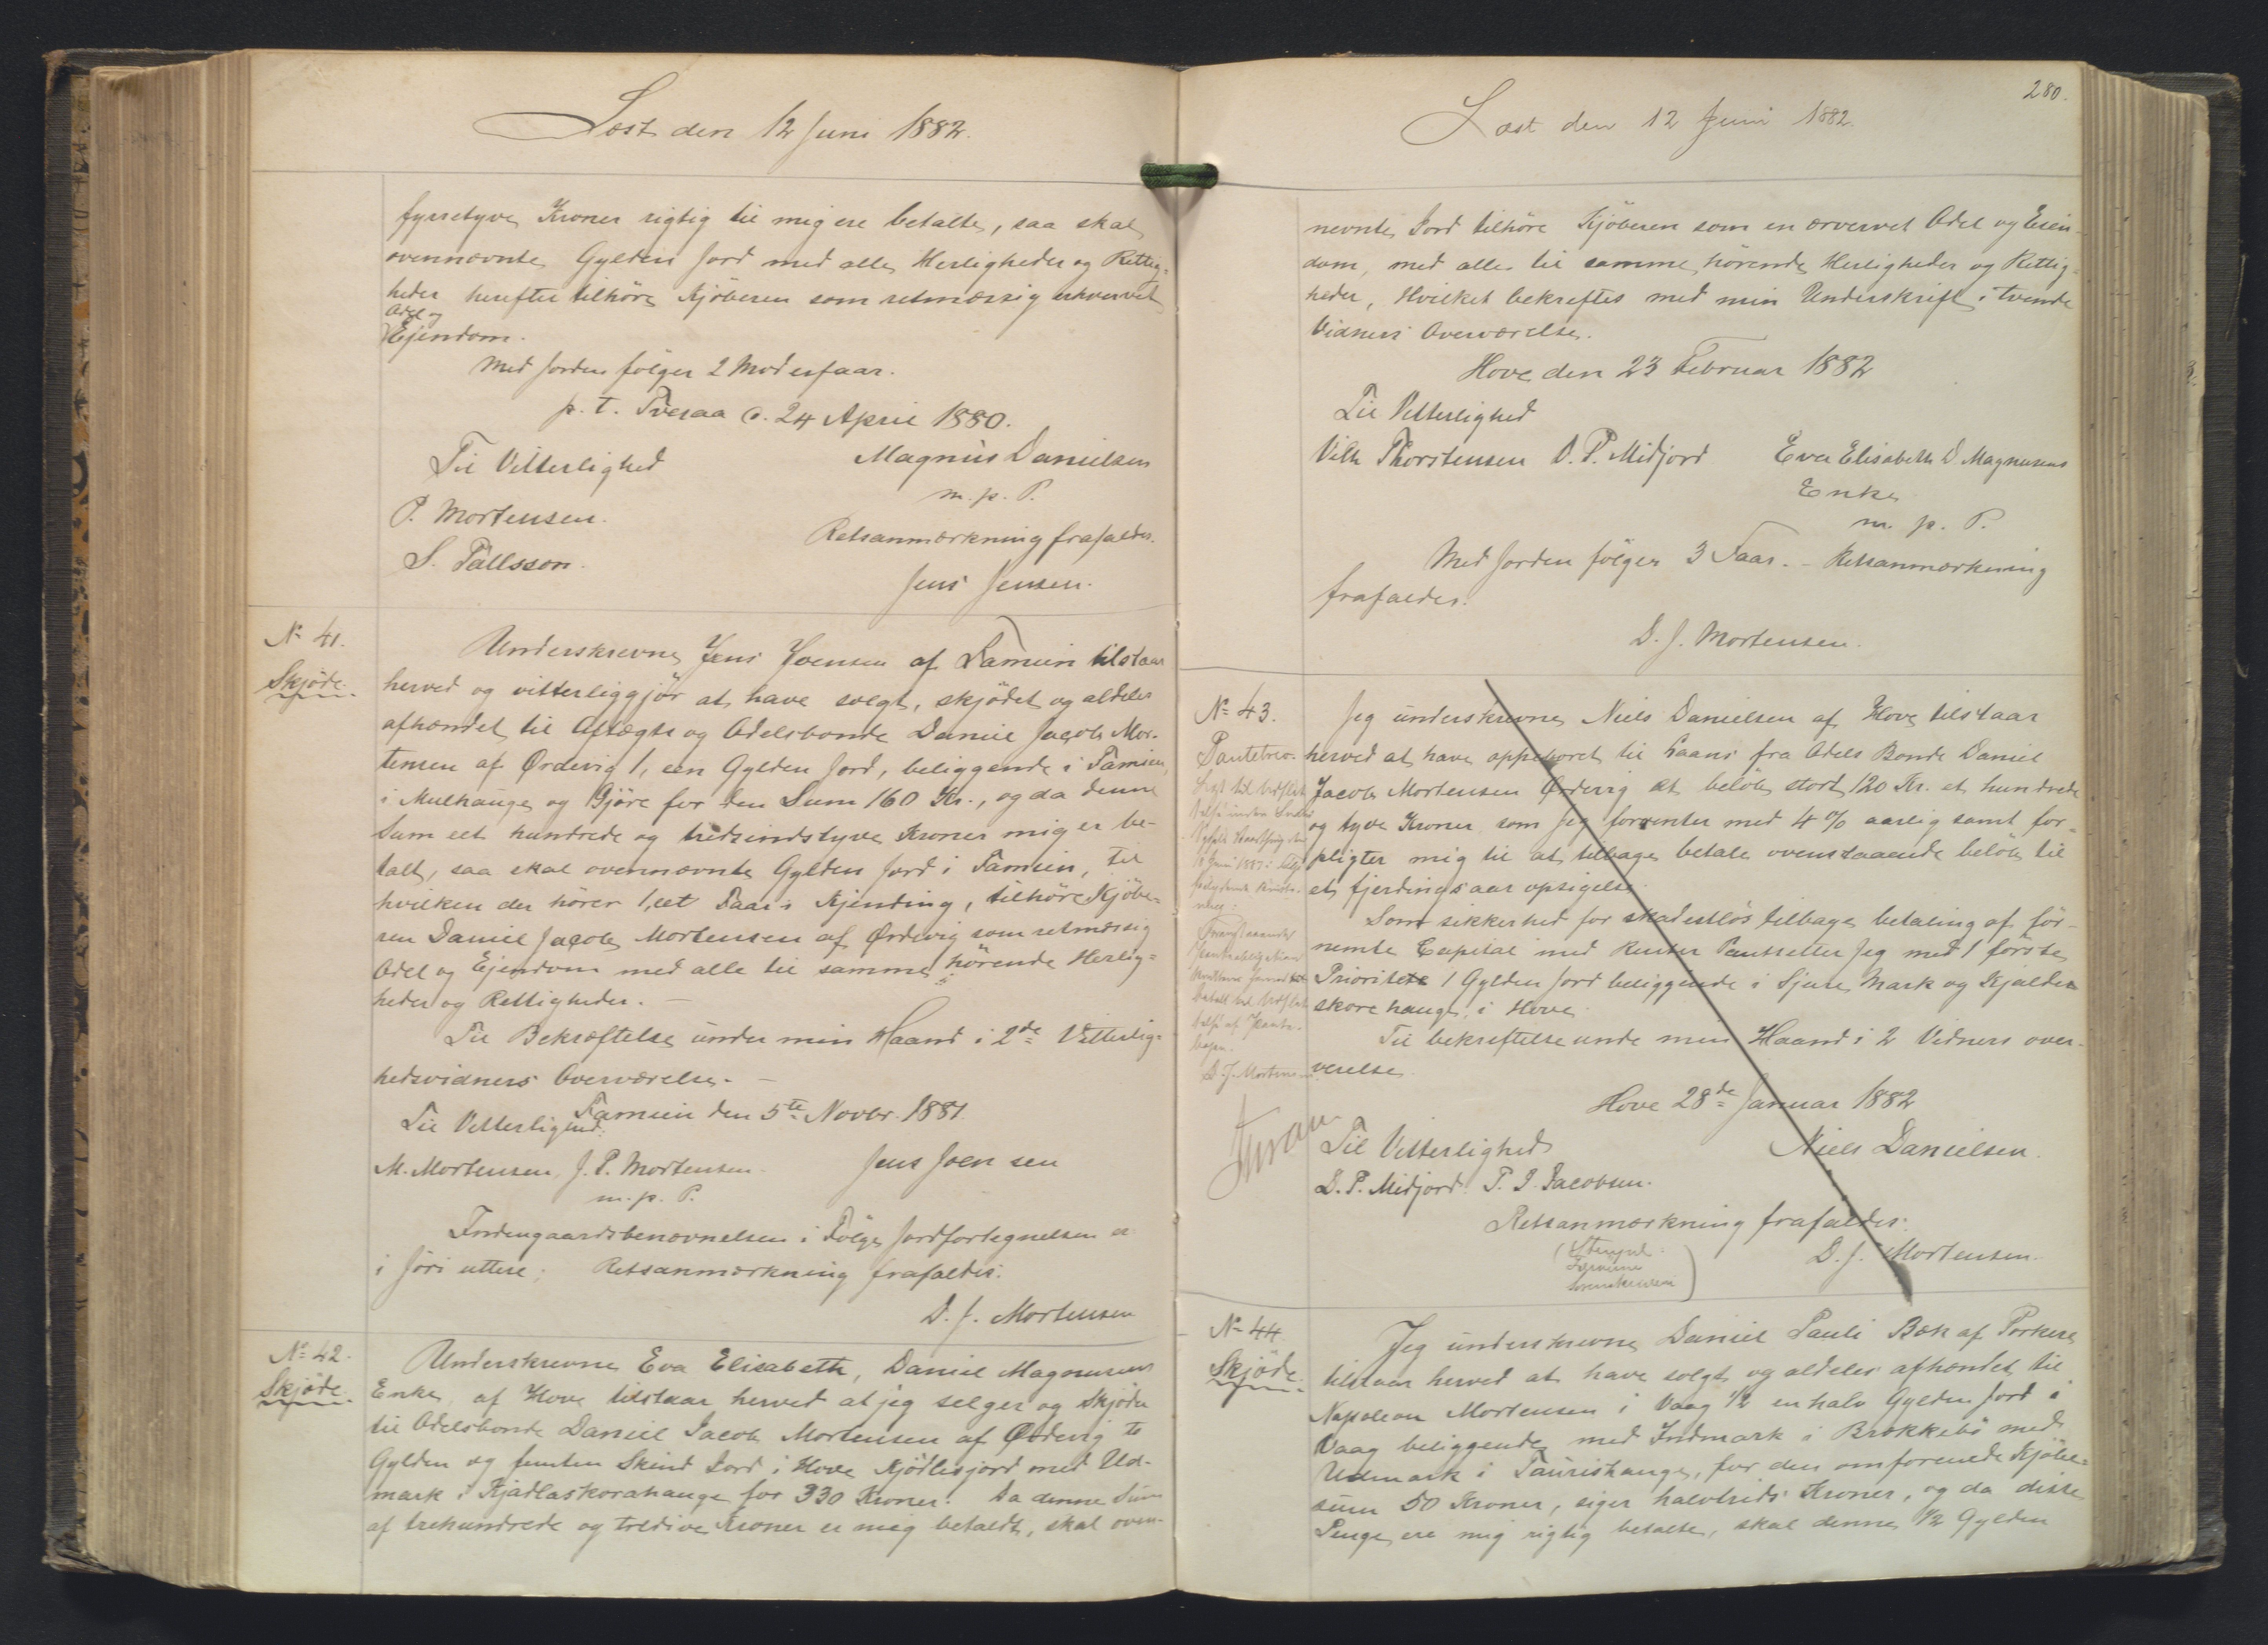 Læst den 12 Juni 1882.
fyrretyve Kroner rigtig til mig ere betalte, saa skal
ovennævnte Gylden Jord med alle Herligheder og Rettig=
heder herefter tilhöre Kjöberen som retmæssig erhvervet
Odel og
Ejendom.
Med Jorden fölger 2 Moderfaar.
p. t. Tveraa d. 24 April 1880.
Til Vitterlighed
Magnus Danielsen
m. p. P.
P. Mortensen.
Retsanmærkning frafaldes.
S. Pállsson.
Jens Jensen.
No 41.
Skjöde.
Underskrevne Jens Joensen af Famien tilstaar
herved og vitterliggjör at have solgt, skjödet og aldeles
afhændet til Aftægts og Odelsbonde Daniel Jacob Mor-
tensen af Ørdevig 1, een Gylden Jord, beliggende i Famien,
i Mulhauge og Gjöre for den Sum 160 Kr., og da denne
Sum eet hundrede og tredsindstyve Kroner mig er be-
talt, saa skal ovennævnte Gylden Jord i Famien, til
hvilken der hörer 1, eet Faar i Kjending, tilhöre Kjöbe-
ren Daniel Jacob Mortensen af Ørdevig som retmæssig
Odel og Ejendom med alle til samme hörende Herlig=
heder og Rettigheder. —
Til Bekræftelse under min Haand i 2de Vitterlig=
hedsvidners Overværelse. —
Famien den 5te Novbr. 1881.
Til Vitterlighed:
M. Mortensen, J. P. Mortensen.
Jens Joensen
m. p. P.
Indengaardsbenævnelsen i Fölge Jordfortegnelsen er
i Jöri uttere; Retsanmærkning frafaldes.
D. J. Mortensen
No 42.
Skjöde.
Underskrevne Eva Elisabeth, Daniel Magnusens
Enke, af Hove tilstaar herved at jeg selger og Skjöder
til Odelsbonde Daniel Jacob Mortensen af Ørdevig to
Gylden og femten Skind Jord i Hove Kjödlesjord med Ud-
mark i Kjadlaskorahauge for 330 Kroner. Da denne Sum
af trehundrede og tredive Kroner er mig betaldt, skal oven-
280.
Læst den 12 Juni 1882.
nevnte Jord tilhöre Kjöberen som en ervervet Odel og Eien-
dom, med alle til samme hörende Herligheder og Rettig-
heder, Hvilket bekreftes med min Underskrift i tvende
Vidners Overværelse.
Hove den 23 Februar 1882
Til Vitterlighed
Vilh Thorstensen D. P. Midjord
Eva Elisabeth D. Magnusens
Enke
m. p. P.
Med Jorden fölger 3 Faar. - Retsanmærkning
frafaldes.
D. J. Mortensen.
No 43.
Pantebrev.
Jeg underskrevne Niels Danielsen af Hove tilstaar
herved at have oppeboret til Laans fra Odels Bonde Daniel
Jacob Mortensen Ørdevig et belöb stort 120 Kr. et hundrede
og tyve Kroner som Jeg forrenter med 4 % aarlig samt for-
pligter mig til at tilbage betale ovenstaaende belöb til
et fjerdings aar opsigelse.
Som sikkerhed for skadeslös tilbage betaling af för-
nemte Capital med Renter Pantsetter Jeg med 1 förste
Prioritet 1 Gylden Jord beliggende i Sjure Mark og Kjalder
skore hauge, i Hove.
Til bekreftelse unde min Haand i 2 Vidners over-
verelse
D. J. Mortensen
Hove 28de Januar 1882
Til Vitterlighed
Niels Danielsen.
D. P. Midjord. P. J. Jacobsen.
Retsanmærkning frafaldes.
D. J. Mortensen.
No 44.
Skjöde.
Jeg underskrevne Daniel Pauli Bæk af Porkere
tilstaar herved at have solgt og aldeles afhændet til
Napoleon Mortensen i Vaag 1/2 en halv Gylden Jord i
Vaag beliggende med Indmark i Brækkebö med
Udmark i Taurishauge, for den omforenede Kjöbe=
sum 50 Kroner, siger halvtreds Kroner, og da disse
Penge ere mig rigtig betalte, skal denne 1/2 Gylden